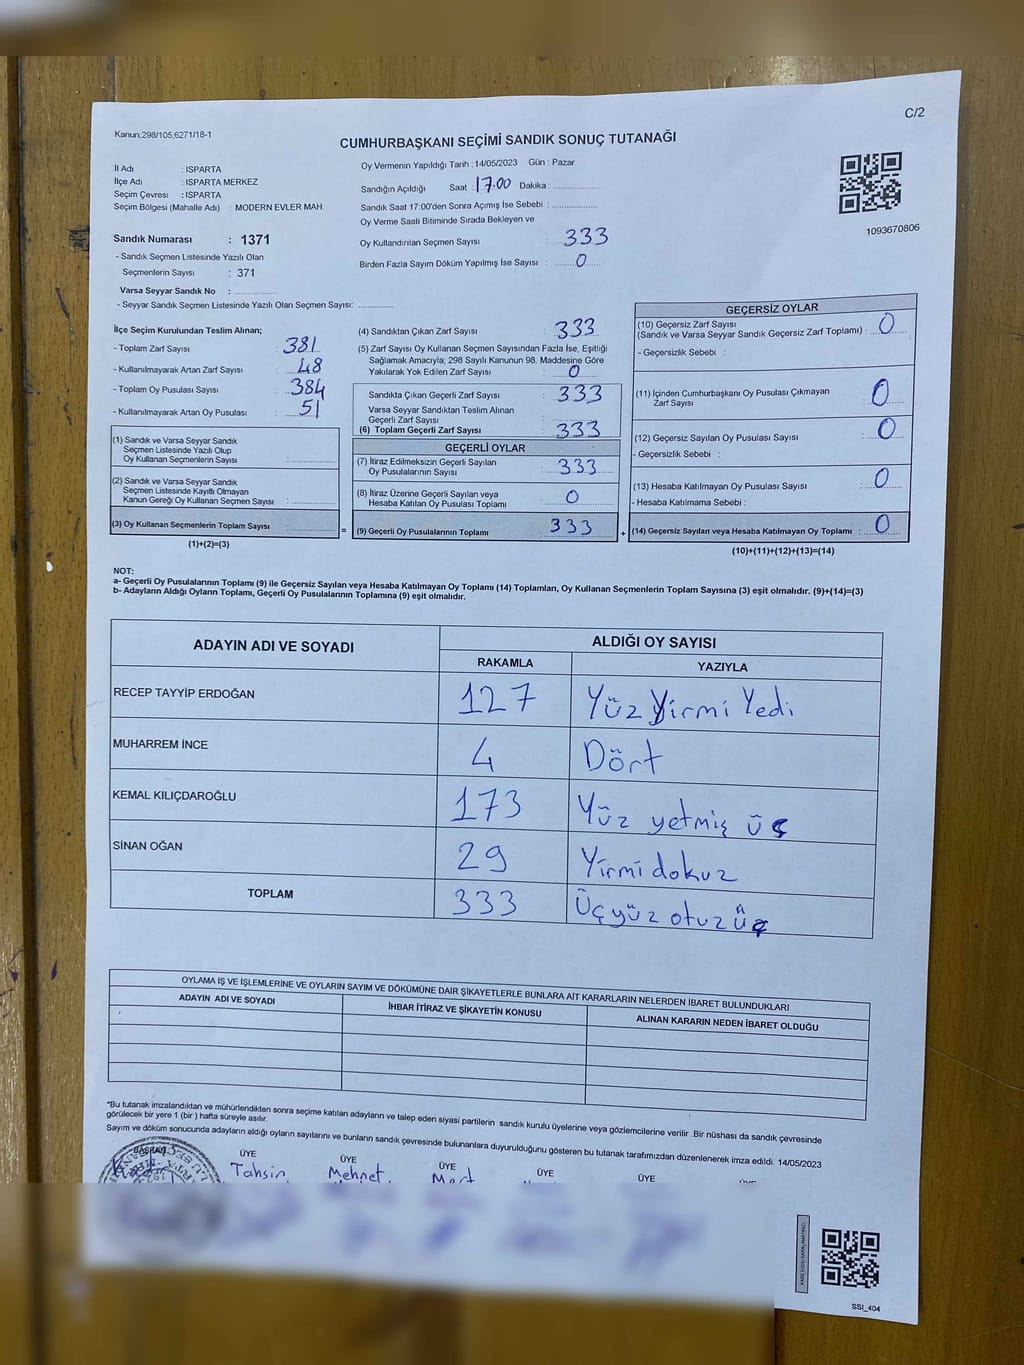 C/2
Kanun;298/105,6271/18-1
CUMHURBAŞKANI SEÇİMİ SANDIK SONUÇ TUTANAĞI
İl Adı : ISPARTA
İlçe Adı : ISPARTA MERKEZ
Seçim Çevresi : ISPARTA
Seçim Bölgesi (Mahalle Adı) : MODERN EVLER MAH.
Oy Vermenin Yapıldığı Tarih : 14/05/2023 Gün : Pazar
Sandığın Açıldığı Saat : 17.00 Dakika : ..............
Sandık Saat 17:00'den Sonra Açmış İse Sebebi : ..............
Oy Verme Saati Bitiminde Sırada Bekleyen ve
Oy Kullandırılan Seçmen Sayısı : 333
Birden Fazla Sayım Döküm Yapılmış İse Sayısı : 0
1093670806
Sandık Numarası : 1371
- Sandık Seçmen Listesinde Yazılı Olan
Seçmenlerin Sayısı : 371
Varsa Seyyar Sandık No : ..............
- Seyyar Sandık Seçmen Listesinde Yazılı Olan Seçmen Sayısı: ..............
İlçe Seçim Kurulundan Teslim Alınan;
- Toplam Zarf Sayısı : 381
- Kullanılmayarak Artan Zarf Sayısı : 48
- Toplam Oy Pusulası Sayısı : 384
- Kullanılmayarak Artan Oy Pusulası : 51
(1) Sandık ve Varsa Seyyar Sandık
Seçmen Listesinde Yazılı Olup
Oy Kullanan Seçmenlerin Sayısı : ..............
(2) Sandık ve Varsa Seyyar Sandık
Seçmen Listesinde Kayıtlı Olmayan
Kanun Gereği Oy Kullanan Seçmen Sayısı : ..............
(3) Oy Kullanan Seçmenlerin Toplam Sayısı : ..............
(1)+(2)=(3)
(4) Sandıktan Çıkan Zarf Sayısı : 333
(5) Zarf Sayısı Oy Kullanan Seçmen Sayısından Fazla İse, Eşitliği
Sağlamak Amacıyla; 298 Sayılı Kanunun 98. Maddesine Göre
Yakılarak Yok Edilen Zarf Sayısı : 0
Sandıkta Çıkan Geçerli Zarf Sayısı : 333
Varsa Seyyar Sandıktan Teslim Alınan
Geçerli Zarf Sayısı :
(6) Toplam Geçerli Zarf Sayısı : 333
GEÇERLİ OYLAR
(7) İtiraz Edilmeksizin Geçerli Sayılan
Oy Pusulalarının Sayısı : 333
(8) İtiraz Üzerine Geçerli Sayılan veya
Hesaba Katılan Oy Pusulaları Toplamı : 0
= (9) Geçerli Oy Pusulalarının Toplamı : 333 +
GEÇERSİZ OYLAR
(10) Geçersiz Zarf Sayısı
(Sandık ve Varsa Seyyar Sandık Geçersiz Zarf Toplamı) : 0
- Geçersizlik Sebebi :
(11) İçinden Cumhurbaşkanı Oy Pusulası Çıkmayan
Zarf Sayısı : 0
(12) Geçersiz Sayılan Oy Pusulası Sayısı : 0
- Geçersizlik Sebebi :
(13) Hesaba Katılmayan Oy Pusulası Sayısı : 0
- Hesaba Katılmama Sebebi :
(14) Geçersiz Sayılan veya Hesaba Katılmayan Oy Toplamı : 0
(10)+(11)+(12)+(13)=(14)
NOT:
a- Geçerli Oy Pusulalarının Toplamı (9) ile Geçersiz Sayılan veya Hesaba Katılmayan Oy Toplamı (14) Toplamları, Oy Kullanan Seçmenlerin Toplam Sayısına (3) eşit olmalıdır. (9)+(14)=(3)
b- Adayların Aldığı Oyların Toplamı, Geçerli Oy Pusulalarının Toplamına (9) eşit olmalıdır.
ADAYIN ADI VE SOYADI ALDIĞI OY SAYISI
RAKAMLA YAZIYLA
RECEP TAYYİP ERDOĞAN 127 Yüz Yirmi Yedi
MUHARREM İNCE 4 Dört
KEMAL KILIÇDAROĞLU 173 Yüz yetmiş üç
SİNAN OĞAN 29 Yirmi dokuz
TOPLAM 333 Üçyüz otuz üç
OYLAMA İŞ VE İŞLEMLERİNE VE OYLARIN SAYIM VE DÖKÜMÜNE DAİR ŞİKAYETLERLE BUNLARA AİT KARARLARIN NELERDEN İBARET BULUNDUKLARI
ADAYIN ADI VE SOYADI İHBAR İTİRAZ VE ŞİKAYETİN KONUSU ALINAN KARARIN NEDEN İBARET OLDUĞU
*Bu tutanak imzalandıktan ve mühürlendikten sonra seçime katılan adayların ve talep eden siyasi partilerin sandık kurulu üyelerine veya gözlemcilerine verilir .Bir nüshası da sandık çevresinde
görülecek bir yere 1 (bir ) hafta süreyle asılır.
Sayım ve döküm sonucunda adayların aldığı oyların sayılarını ve bunların sandık çevresinde bulunanlara duyurulduğunu gösteren bu tutanak tarafımızdan düzenlenerek imza edildi. 14/05/2023
BAŞKAN ÜYE ÜYE ÜYE ÜYE ÜYE
Tahsin Mehmet Mert
SSI_404